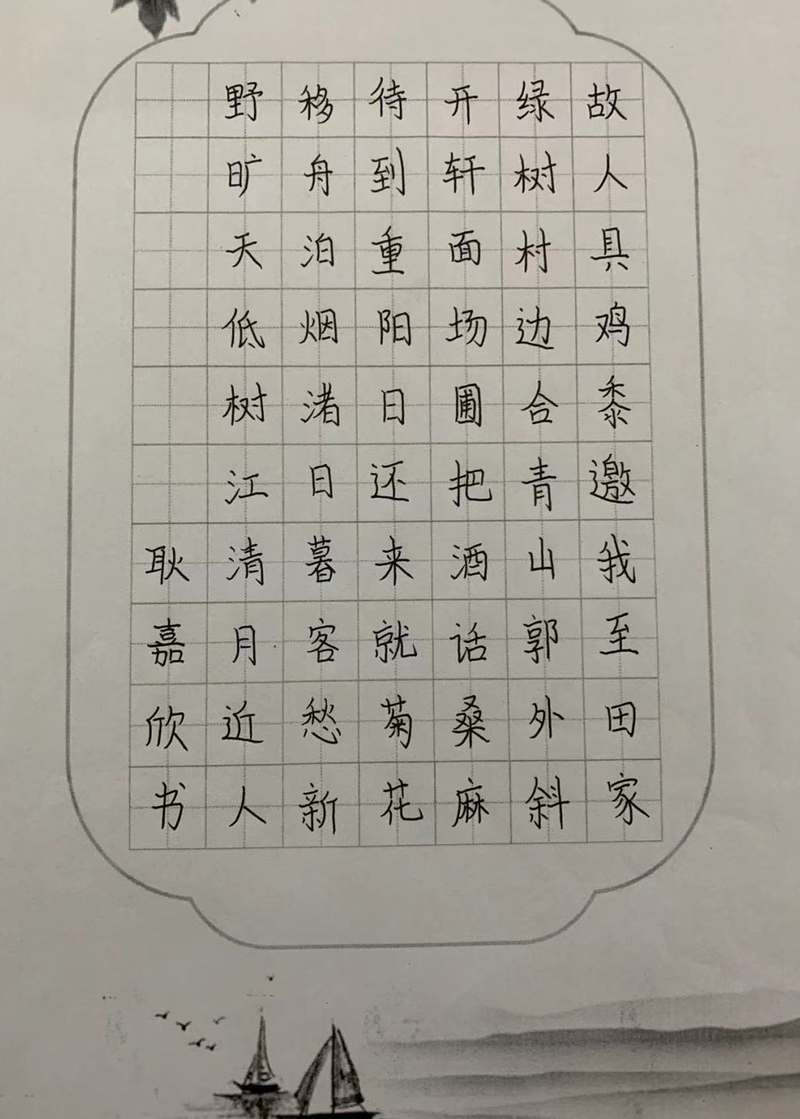 故人具鸡黍邀我至田家
绿树村边合青山郭外斜
开轩面场圃把酒话桑麻
待到重阳日还来就菊花
移舟泊烟渚日暮客愁新
野旷天低树江清月近人
耿嘉欣书